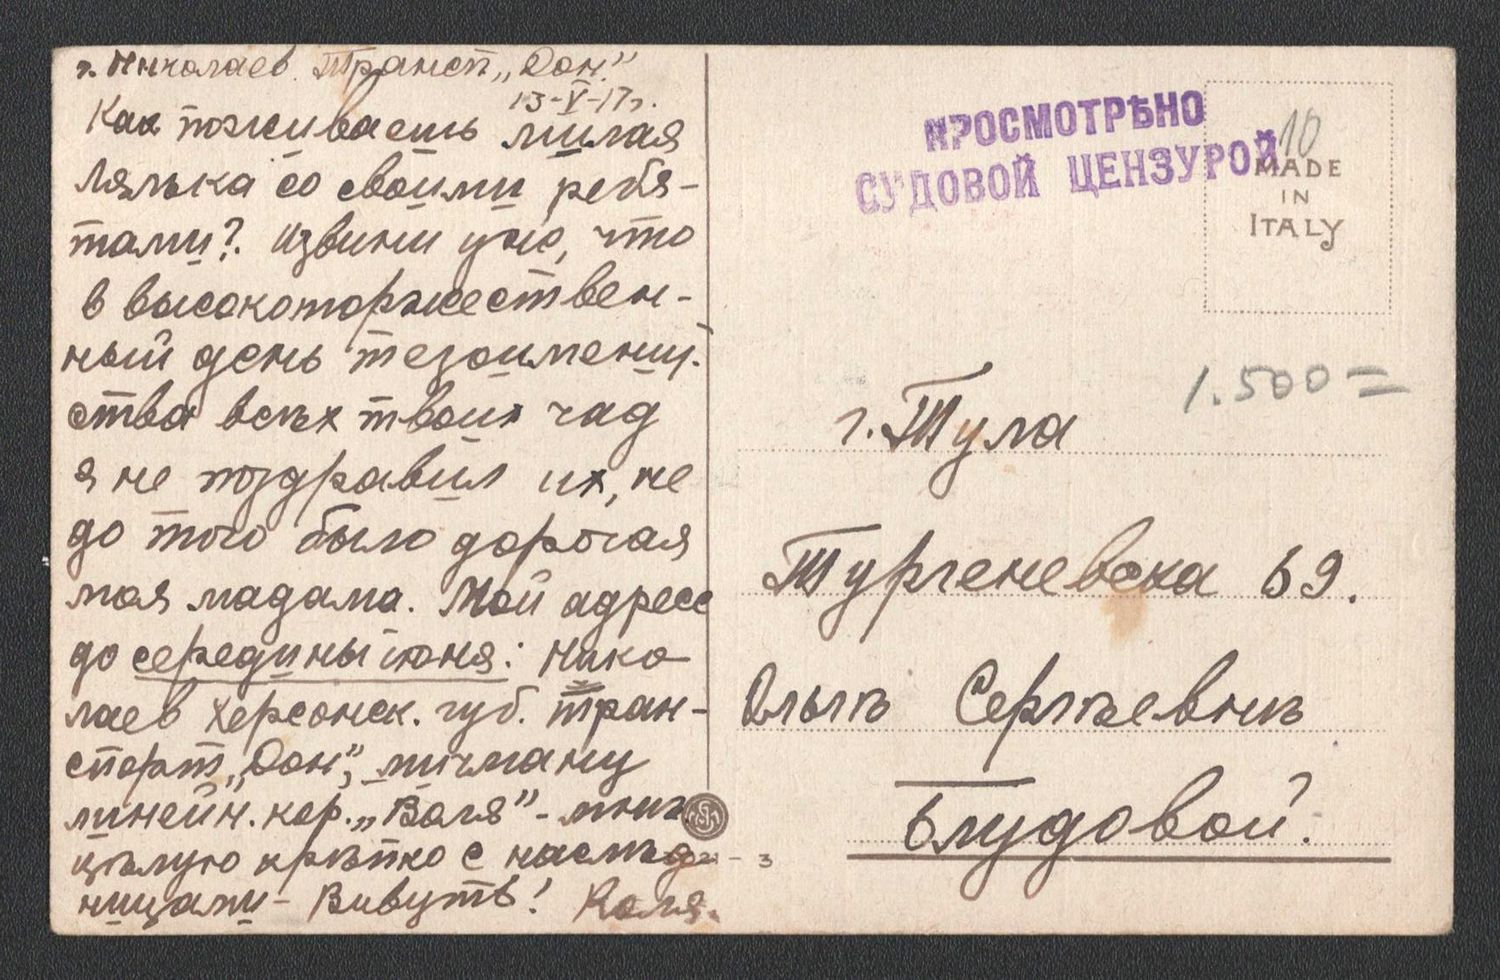 г. Николаев. Трансп. „Дон."
13-V-17 г.
Как поживаешь милая
Лялька со своими ребя-
тами? Извини уж, что
в высокоторжествен-
ный день тезоименит.
ства всѣх твоих чад
я не поздравил их, не
до того было дорогая
моя мадама. Мой адресс
до середины iюня: Нико
лаев Херсонск. губ. Тран-
спорт „Дон", мичману
линейн. кор. „Воля" - мнѣ.
Цѣлую крѣпко с наслѣд
ницами - Вивутъ! Коля.
ПРОСМОТРѢНО
СУДОВОЙ ЦЕНЗУРОЙ
10
MADE
IN
ITALY
1.500=
г. Тула
Тургеневска 69.
Ольгѣ Сергѣевнѣ
Блудовой.
- 3